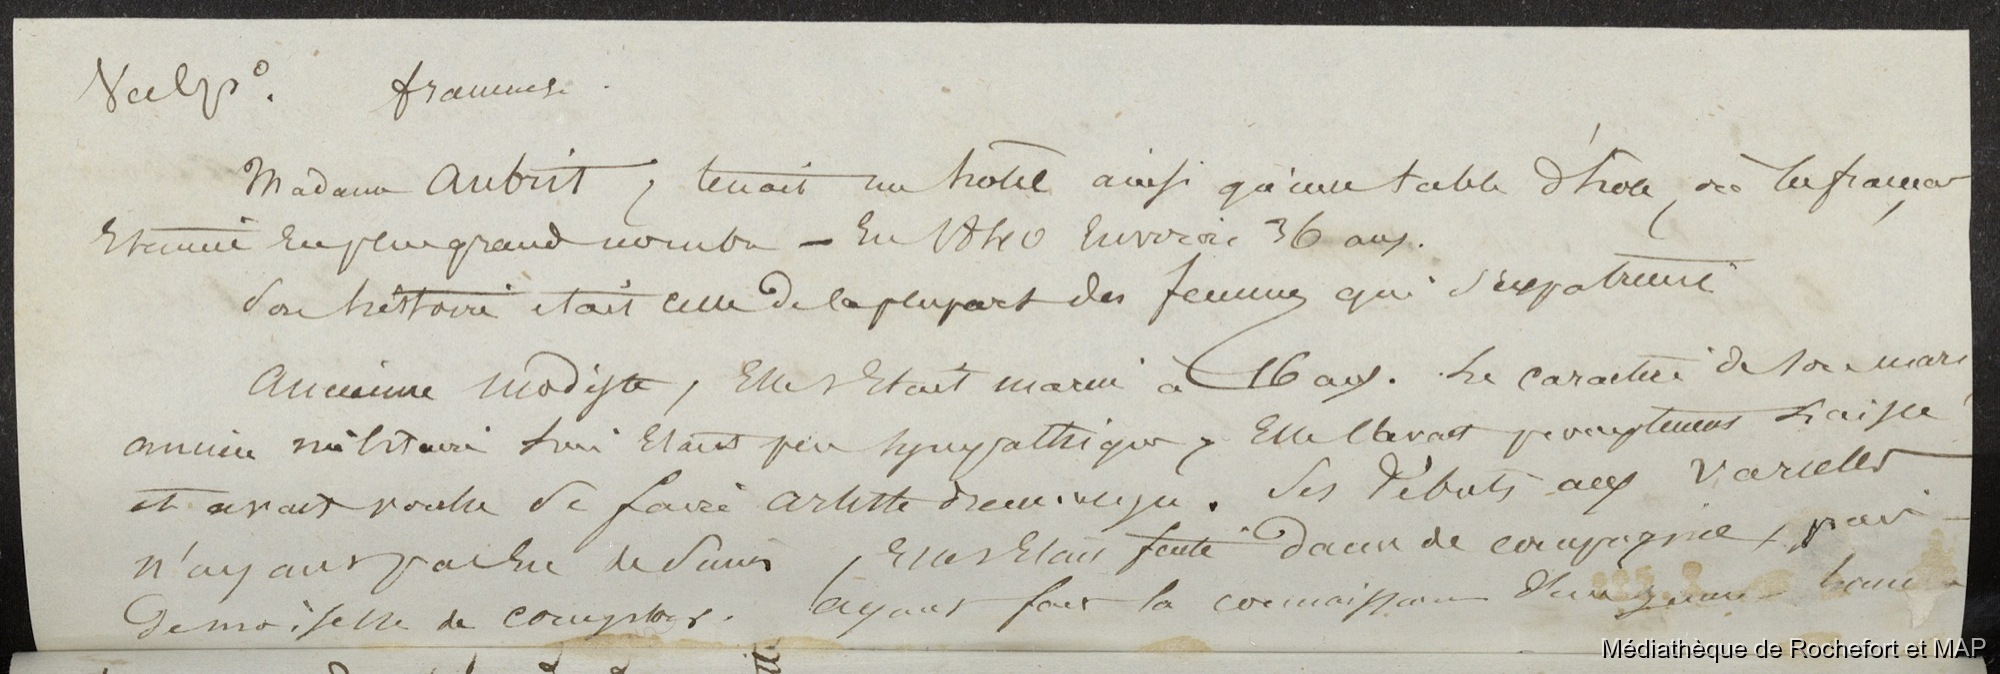 Valpo. française.
Madame Aubrit, tenait un hôtel ainsi qu'une table d'hôte, où les français
étaient en plus grand nombre – En 1840 environ 36 ans.
Son histoire était celle de la plupart des femmes qui s'expatrient
Ancienne modiste, elle s'était marié à 16 ans. Le caractère de son mari
ancien militaire lui étant peu sympathique, elle l'avait promptement laissé
et avait voulu se faire artiste dramatique. Ses débuts aux Variétés
n'ayant pas eu de suites, elle s'était faite dame de compagnie, puis
demoiselle de comptoir. Ayant fait la connaissance d'un jeune homme
Médiathèque de Rochefort et MAP